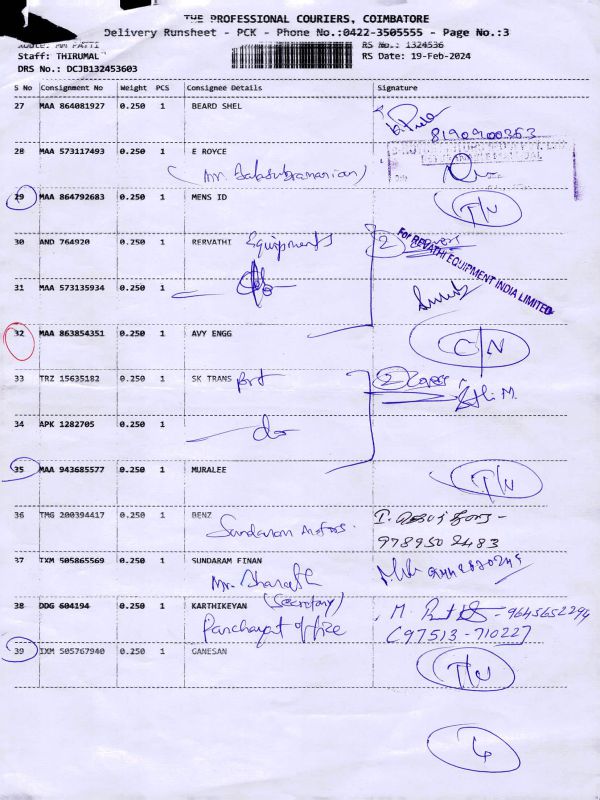 THE PROFESSIONAL COURIERS, COIMBATORE
Delivery Runsheet - PCK - Phone No.:0422-3505555 - Page No.:3
RS No.: 1324536
Staff: THIRUMAL
RS Date: 19-Feb-2024
DRS No.: DCJB132453603
S No Consignment No Weight PCS Consignee Details Signature
27 MAA 864081927 0.250 1 BEARD SHEL
8190900363
28 MAA 573117493 0.250 1 E ROYCE
(Mr. Balasubramanian)
29 MAA 864792683 0.250 1 MENS ID T/N
30 AND 764920 0.250 1 RERVATHI Equipments 2 covers
For REVATHI EQUIPMENT INDIA LIMITED
31 MAA 573135934 0.250 1
32 MAA 863854351 0.250 1 AVY ENGG C/N
33 TRZ 15635182 0.250 1 SK TRANS port 2 Covers
34 APK 1282705 0.250 1 do
35 MAA 943685577 0.250 1 MURALEE T/N
36 TMG 200394417 0.250 1 BENZ
Sundaram Motors.
978950 2483
37 TXM 505865569 0.250 1 SUNDARAM FINAN
Mr. Bharath
(Secretary)
38 DDG 604194 0.250 1 KARTHIKEYAN M. - 9645652294
Panchayat office (97513-710227)
39 IXM 505767940 0.250 1 GANESAN T/N
4